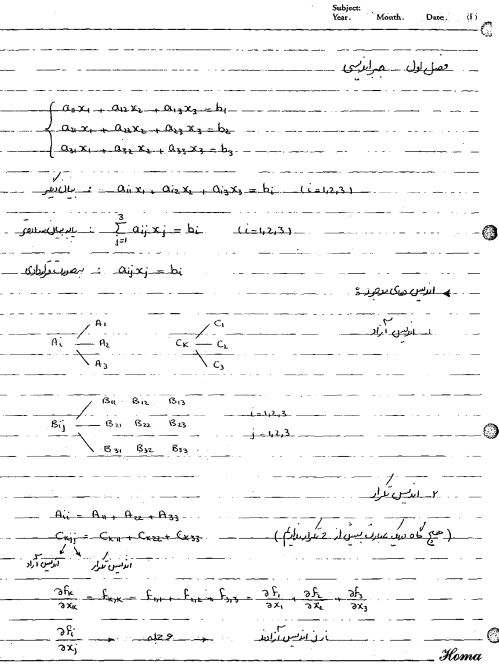 Subject:
Year. Month. Date. (1)
فصل اول جبر اندیسی
a₁₁x₁ + a₁₂x₂ + a₁₃x₃ = b₁
a₂₁x₁ + a₂₂x₂ + a₂₃x₃ = b₂
a₃₁x₁ + a₃₂x₂ + a₃₃x₃ = b₃
بیان دیگر : aᵢ₁x₁ + aᵢ₂x₂ + aᵢ₃x₃ = bᵢ (i=1,2,3)
یا به بیان ساده‌تر : ∑_{j=1}^{3} aᵢⱼxⱼ = bᵢ (i=1,2,3)
بصورت قراردادی : aᵢⱼxⱼ = bᵢ
◄ اندیس های موجود :
۱- اندیس آزاد
Aᵢ A₁ A₂ A₃
Cₖ C₁ C₂ C₃
Bᵢⱼ
B₁₁ B₁₂ B₁₃
B₂₁ B₂₂ B₂₃
B₃₁ B₃₂ B₃₃
i=1,2,3
j=1,2,3
۲- اندیس تکرار
Aᵢᵢ = A₁₁ + A₂₂ + A₃₃
Cₖⱼⱼ = Cₖ₁₁ + Cₖ₂₂ + Cₖ₃₃
(هیچ گاه در یک عبارت بیش از 2 تکرار نداریم)
اندیس آزاد اندیس تکرار
∂fₖ/∂xₖ = fₖ,ₖ = f₁,₁ + f₂,₂ + f₃,₃ = ∂f₁/∂x₁ + ∂f₂/∂x₂ + ∂f₃/∂x₃
∂fᵢ/∂xⱼ → ۹ جمله → i و j اندیس آزادند
Homa